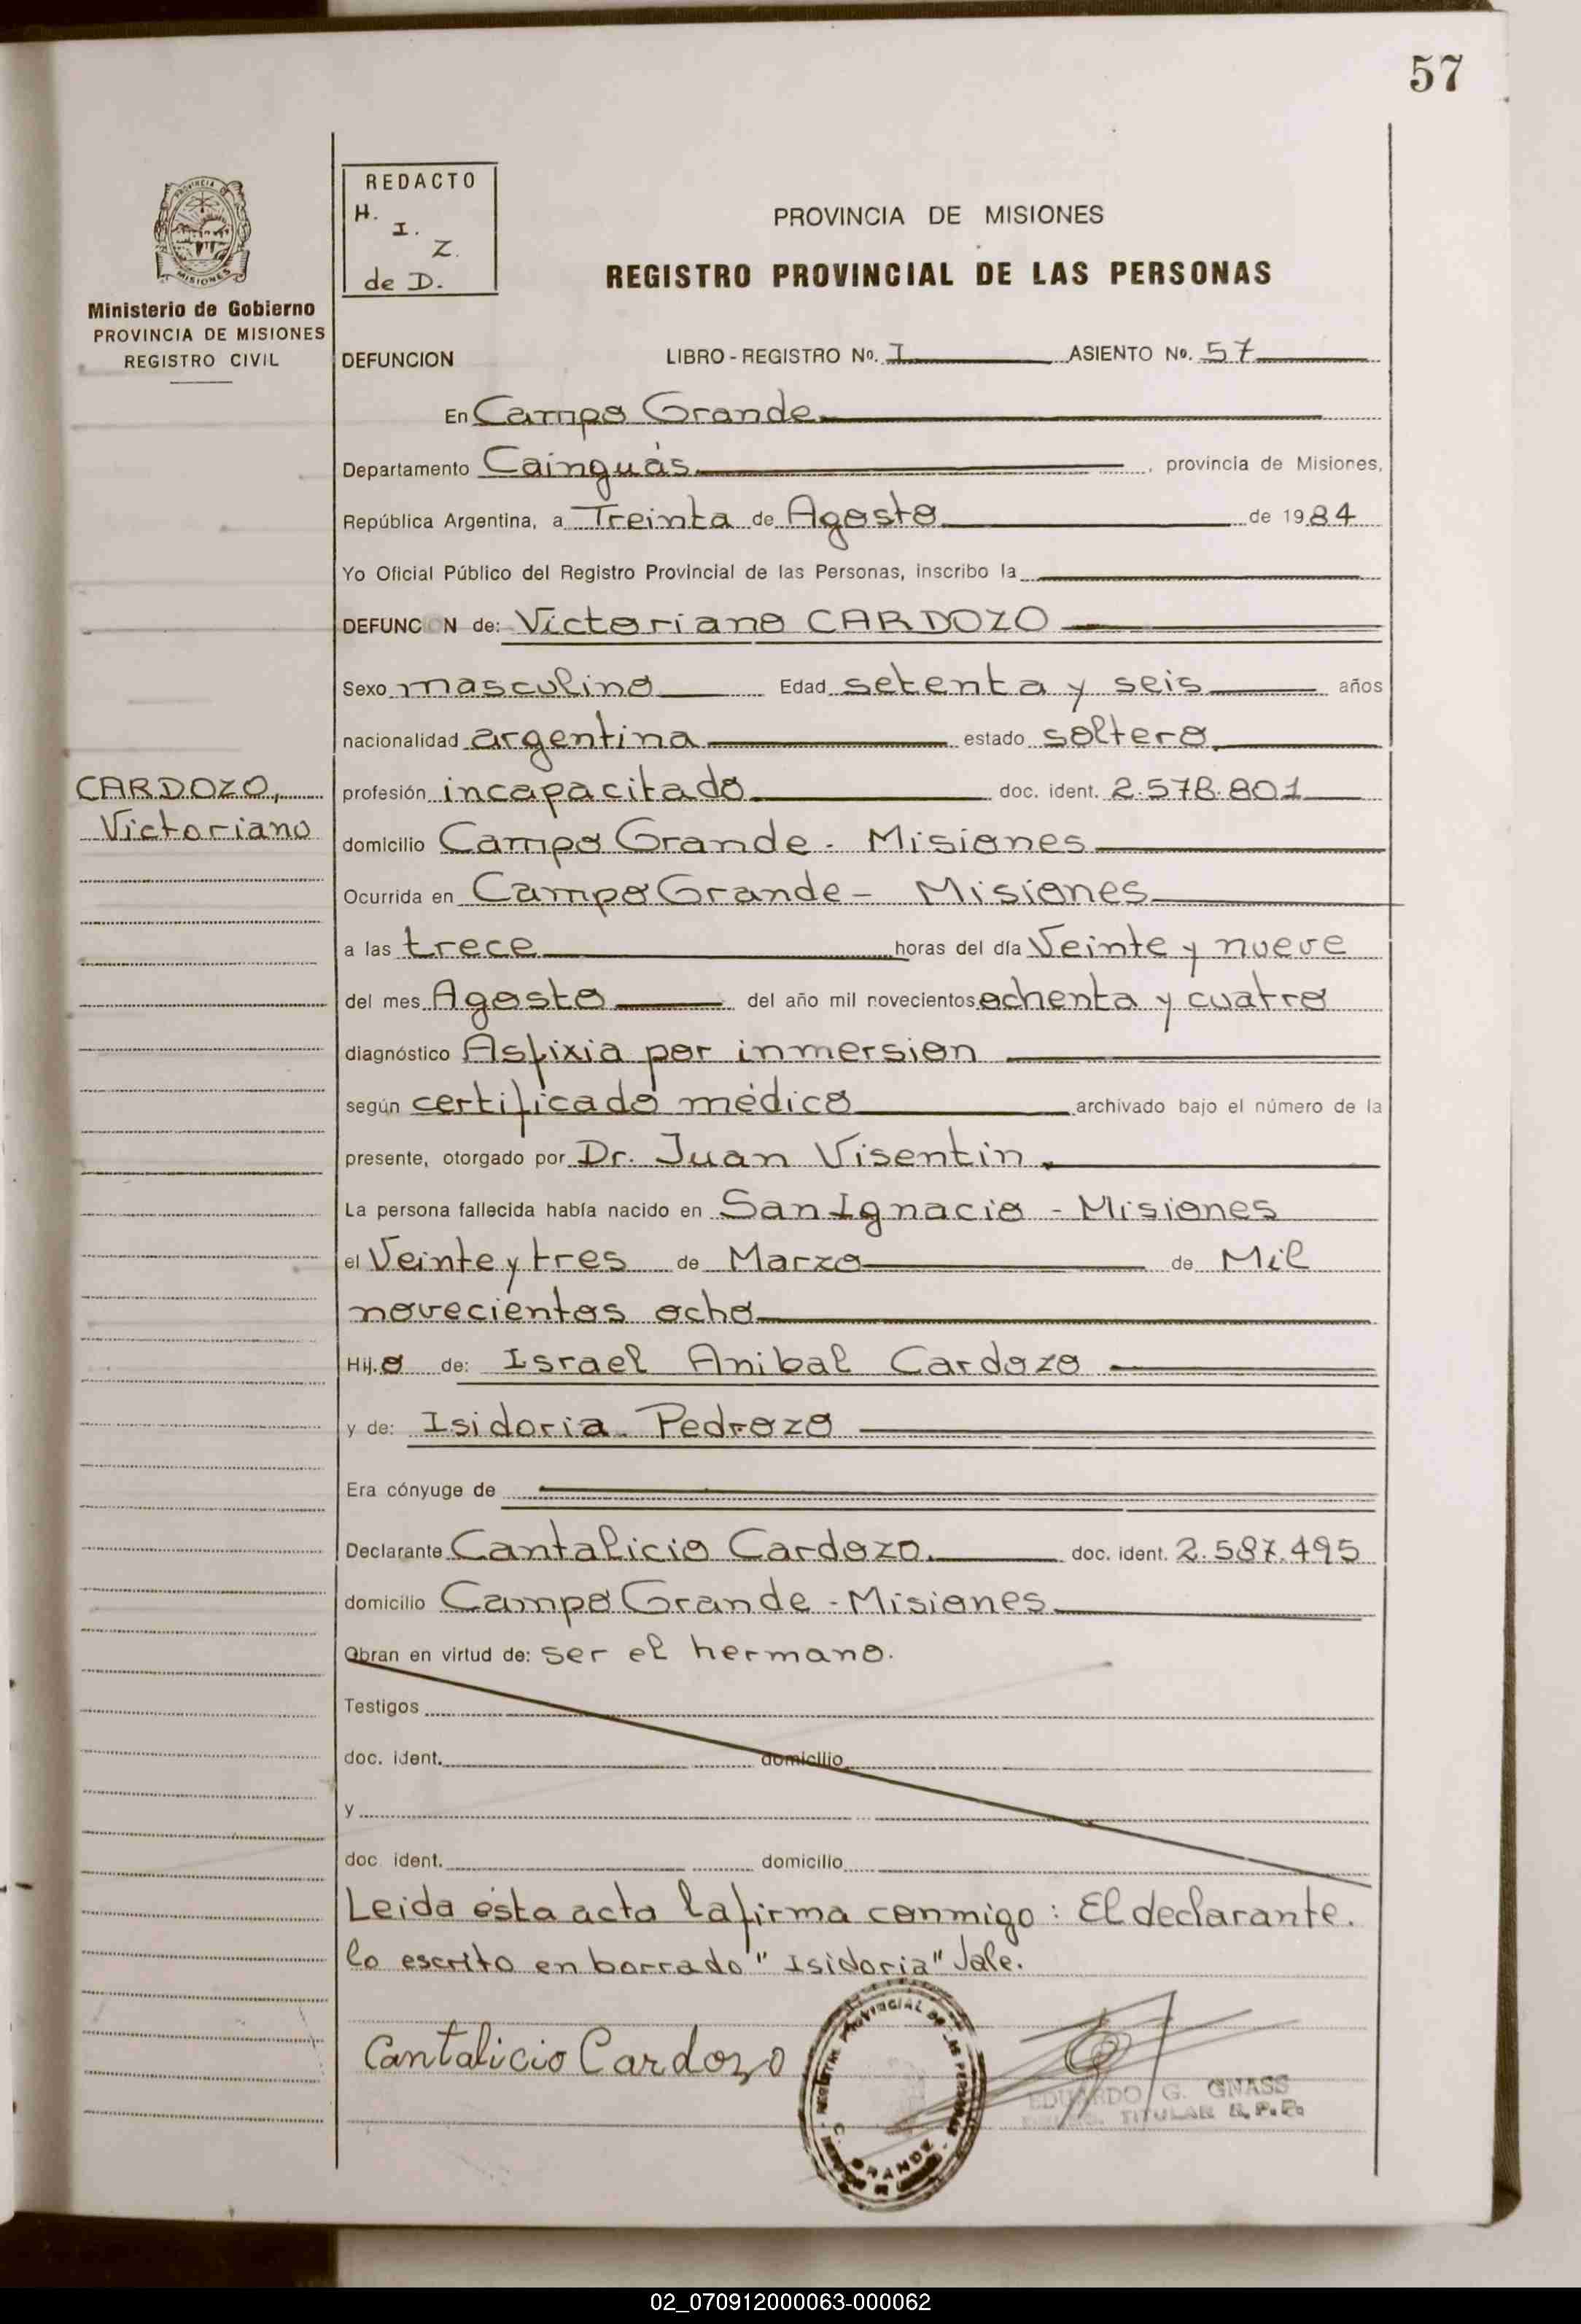 57
REDACTO
H.
I.
Z.
de D.
PROVINCIA DE MISIONES
REGISTRO PROVINCIAL DE LAS PERSONAS
Ministerio de Gobierno
PROVINCIA DE MISIONES
REGISTRO CIVIL
DEFUNCION LIBRO - REGISTRO No. I ASIENTO No. 57
En Campo Grande
Departamento Cainguás, provincia de Misiones,
República Argentina, a Treinta de Agosto de 1984
Yo Oficial Público del Registro Provincial de las Personas, inscribo la
DEFUNCION de: Victoriano CARDOZO
Sexo masculino Edad setenta y seis años
nacionalidad argentina estado soltero
CARDOZO,
Victoriano
profesión incapacitado doc. ident. 2.578.801
domicilio Campo Grande - Misiones
Ocurrida en Campo Grande - Misiones
a las trece horas del día Veinte y nueve
del mes Agosto del año mil novecientos ochenta y cuatro
diagnóstico Asfixia por inmersion
según certificado médico archivado bajo el número de la
presente, otorgado por Dr. Juan Visentin.
La persona fallecida había nacido en San Ignacio - Misiones
el Veinte y tres de Marzo de Mil
novecientos ocho
Hij.o de: Israel Anibal Cardozo
y de: Isidoria Pedrozo
Era cónyuge de
Declarante Cantalicio Cardozo. doc. ident. 2.587.495
domicilio Campo Grande - Misiones
Obran en virtud de: ser el hermano.
Testigos
doc. ident. domicilio
y
doc. ident. domicilio
Leida ésta acta la firma conmigo: El declarante.
lo escrito en borrado "Isidoria" Vale.
Cantalicio Cardozo
PROVINCIAL DE LAS PERSONAS
C. GRANDE
EDUARDO G. GNASS
TITULAR R.P.P.
02_070912000063-000062